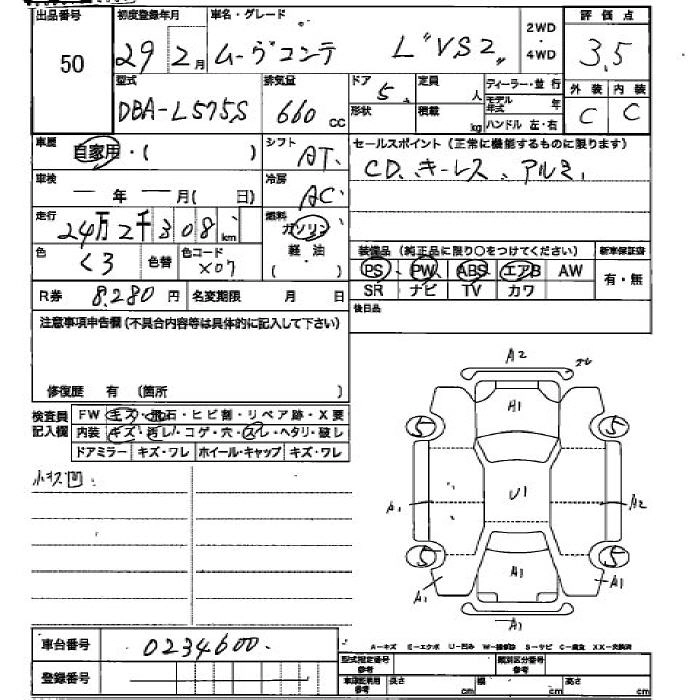 出品番号 初度登録年月 車名・グレード 2WD・4WD 評価点
50 29 2月 ムーヴコンテ L"VS2" 3.5
型式 排気量 ドア 定員 ディーラー・並行 外装 内装
DBA-L575S 660cc 5 人 モデル年式 年 C C
形状 積載 kg ハンドル 左・右
車歴 自家用・( ) シフト AT. セールスポイント(正常に機能するものに限ります)
CD、キーレス、アルミ.
車検 ー年ー月(日) 冷房 AC
走行 24万2千308km 燃料 ガソリン
軽油
色 くろ 色替 色コード X07
装備品(純正品に限り○をつけてください) 新車保証書
PS PW ABS エアB AW 有・無
SR ナビ TV カワ
R券 8,280円 名変期限 月 日
後日品
注意事項申告欄(不具合内容等は具体的に記入して下さい)
修復歴 有(箇所 )
検査員記入欄
FW キズ・飛石・ヒビ割・リペア跡・X要
内装 キズ・汚レ・コゲ・穴・スレ・ヘタリ・破レ
ドアミラー キズ・ワレ ホイール・キャップ キズ・ワレ
小キズ凹.
A2
A1
5 5
A1 U1 A2
5 5
A1 A1 A1
A1
車台番号 0234600.
A-キズ E-エクボ U-凹み W-補修跡 S-サビ C-腐食 XX-交換済
登録番号
型式指定番号 参考 類別区分番号 参考
車庫証明用 参考 長さ cm 幅 cm 高さ cm